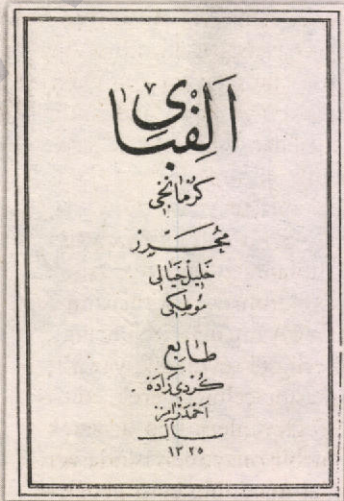 اَلِفْبَایِ
كُرْمَانْجِی
مُحَرِّرْ
خَلِیلْ خَیَالِی
مُوطْكِی
طَابِعْ
كُرْدِی زَادَهْ
اَحْمَدْ رَامِزْ
سال
۱۳۲۵